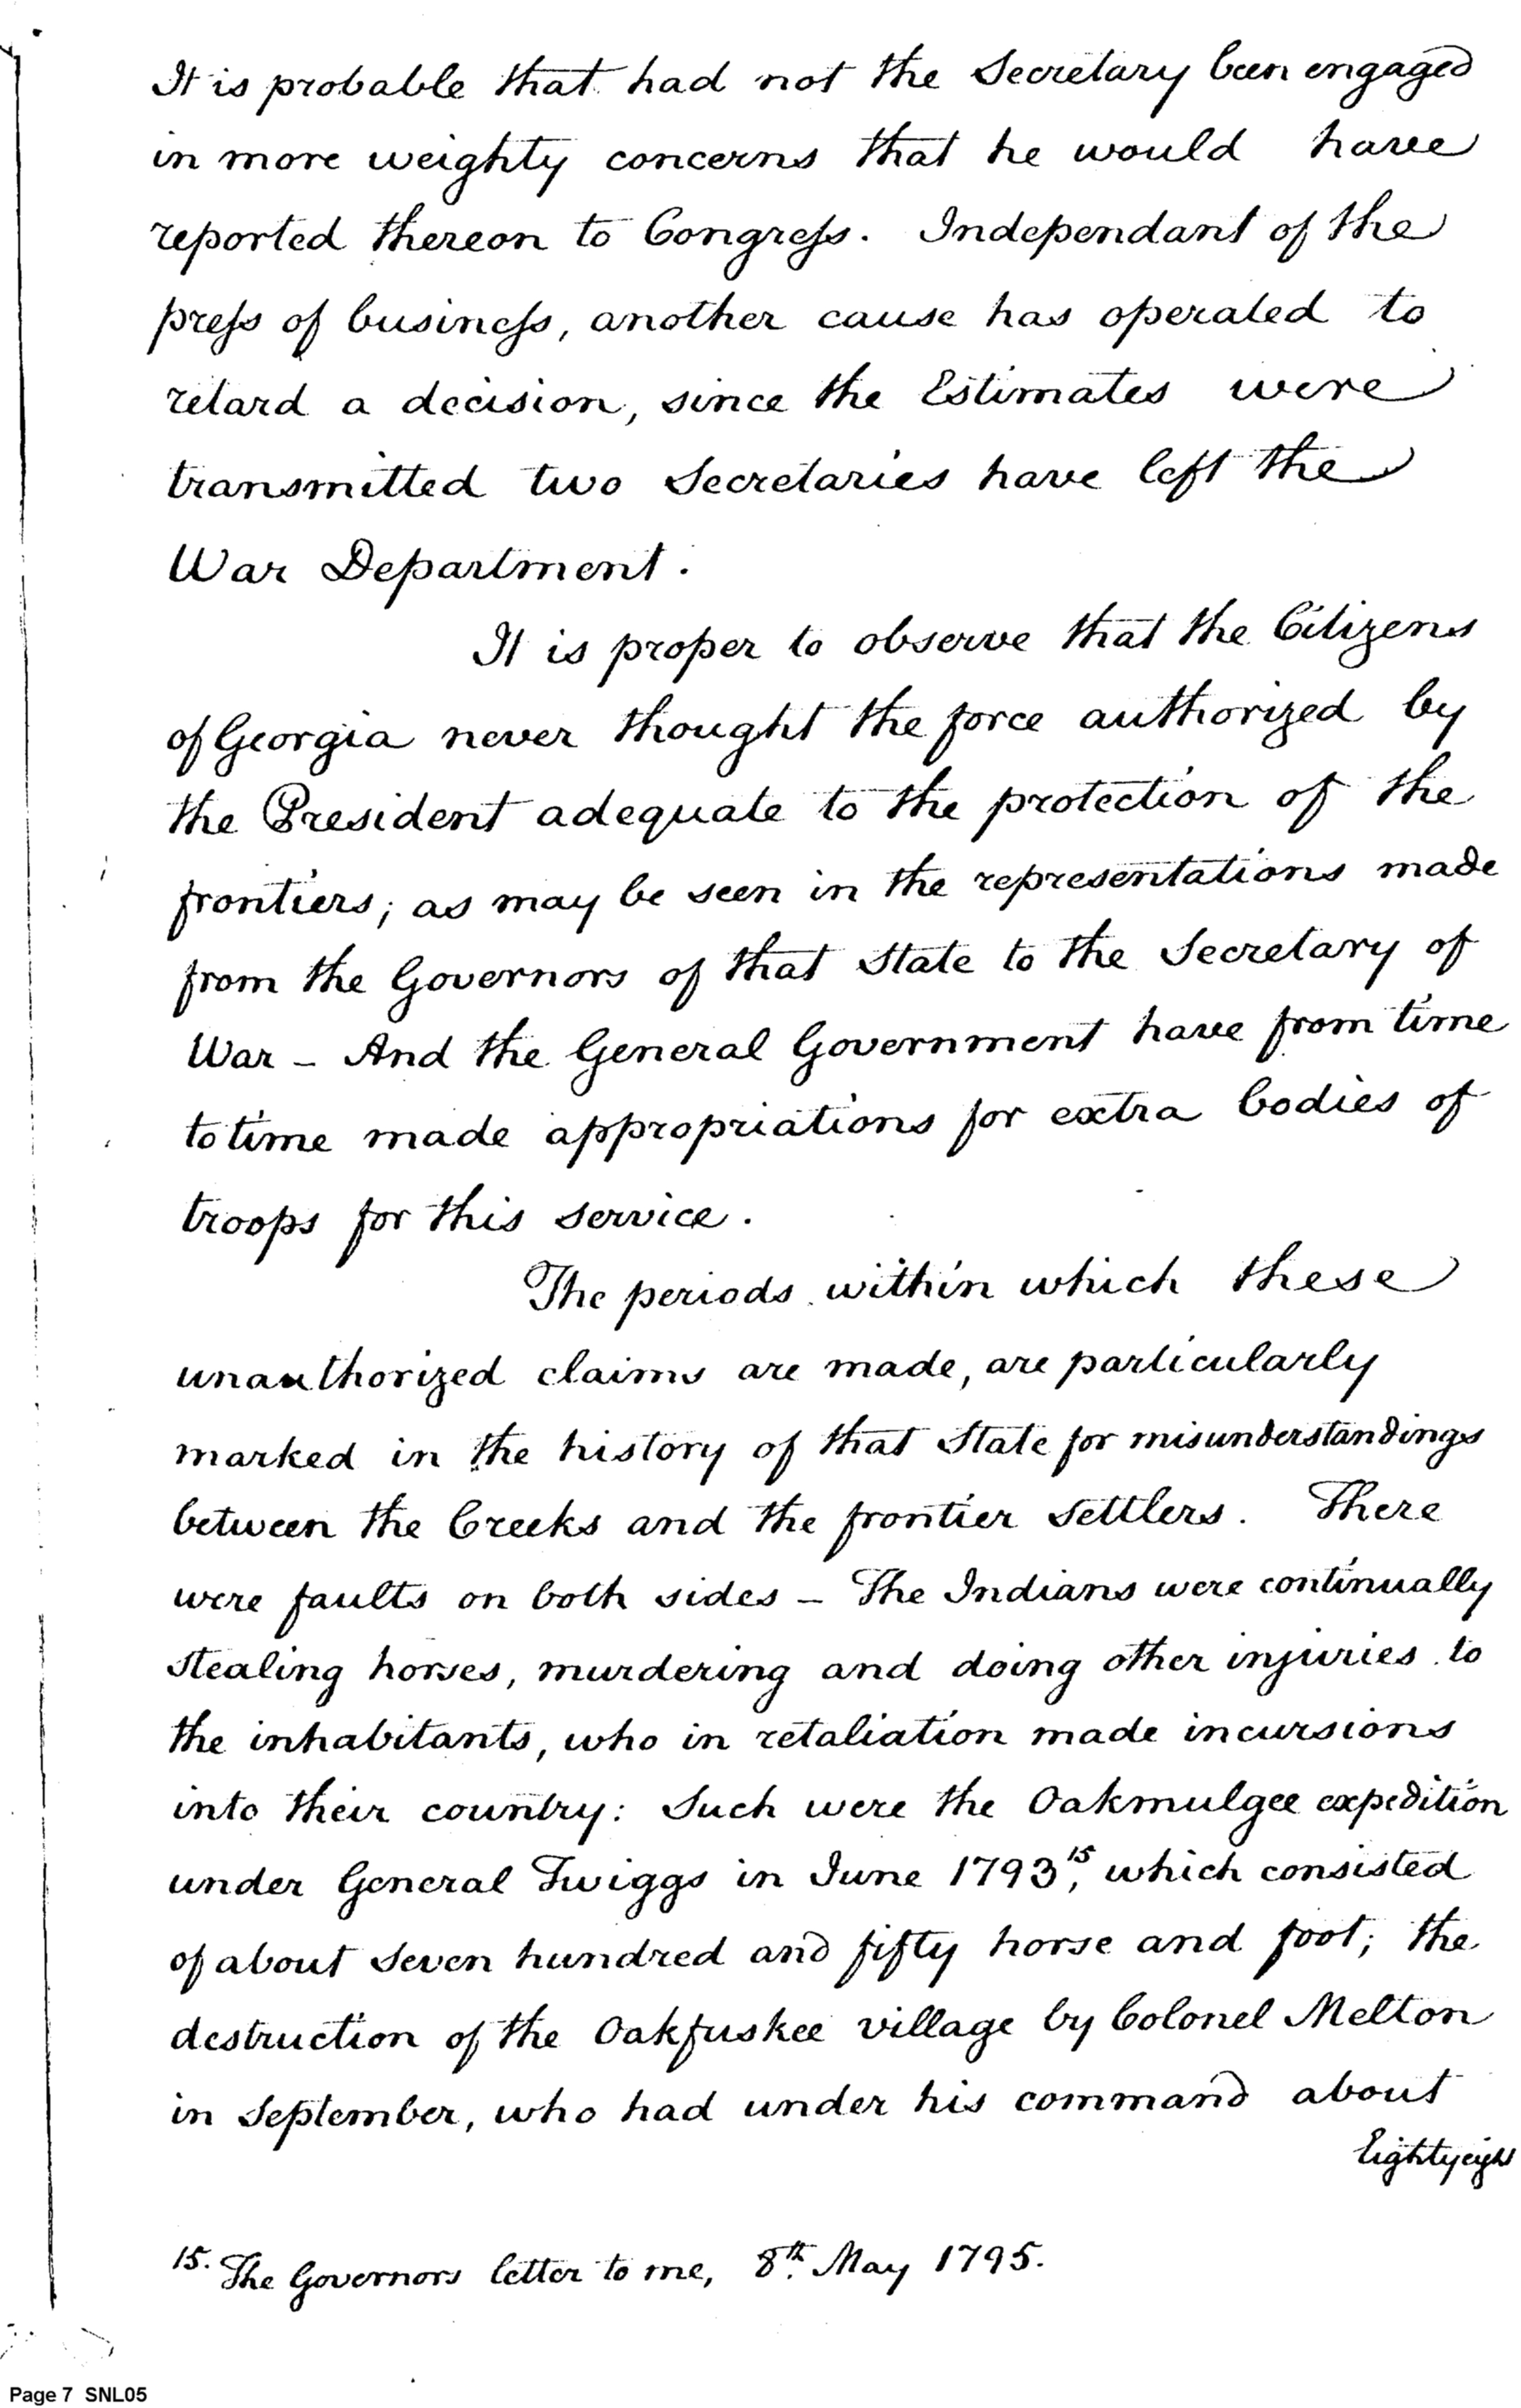 It is probable that had not the Secretary been engaged
in more weighty concerns that he would have
reported thereon to Congress. Independant of the
press of business, another cause has operated to
retard a decision, since the Estimates were
transmitted two Secretaries have left the
War Department.
It is proper to observe that the Citizens
of Georgia never thought the force authorized by
the President adequate to the protection of the
frontiers; as may be seen in the representations made
from the Governors of that State to the Secretary of
War – And the General Government have from time
to time made appropriations for extra bodies of
troops for this service.
The periods within which these
unauthorized claims are made, are particularly
marked in the history of that State for misunderstandings
between the Creeks and the frontier settlers. There
were faults on both sides – The Indians were continually
stealing horses, murdering and doing other injuries to
the inhabitants, who in retaliation made incursions
into their country: Such were the Oakmulgee expedition
under General Twiggs in June 1793,15 which consisted
of about seven hundred and fifty horse and foot; the
destruction of the Oakfuskee village by Colonel Melton
in September, who had under his command about
Eighty eight
15. The Governors letter to me, 8th. May 1795.
Page 7 SNL05